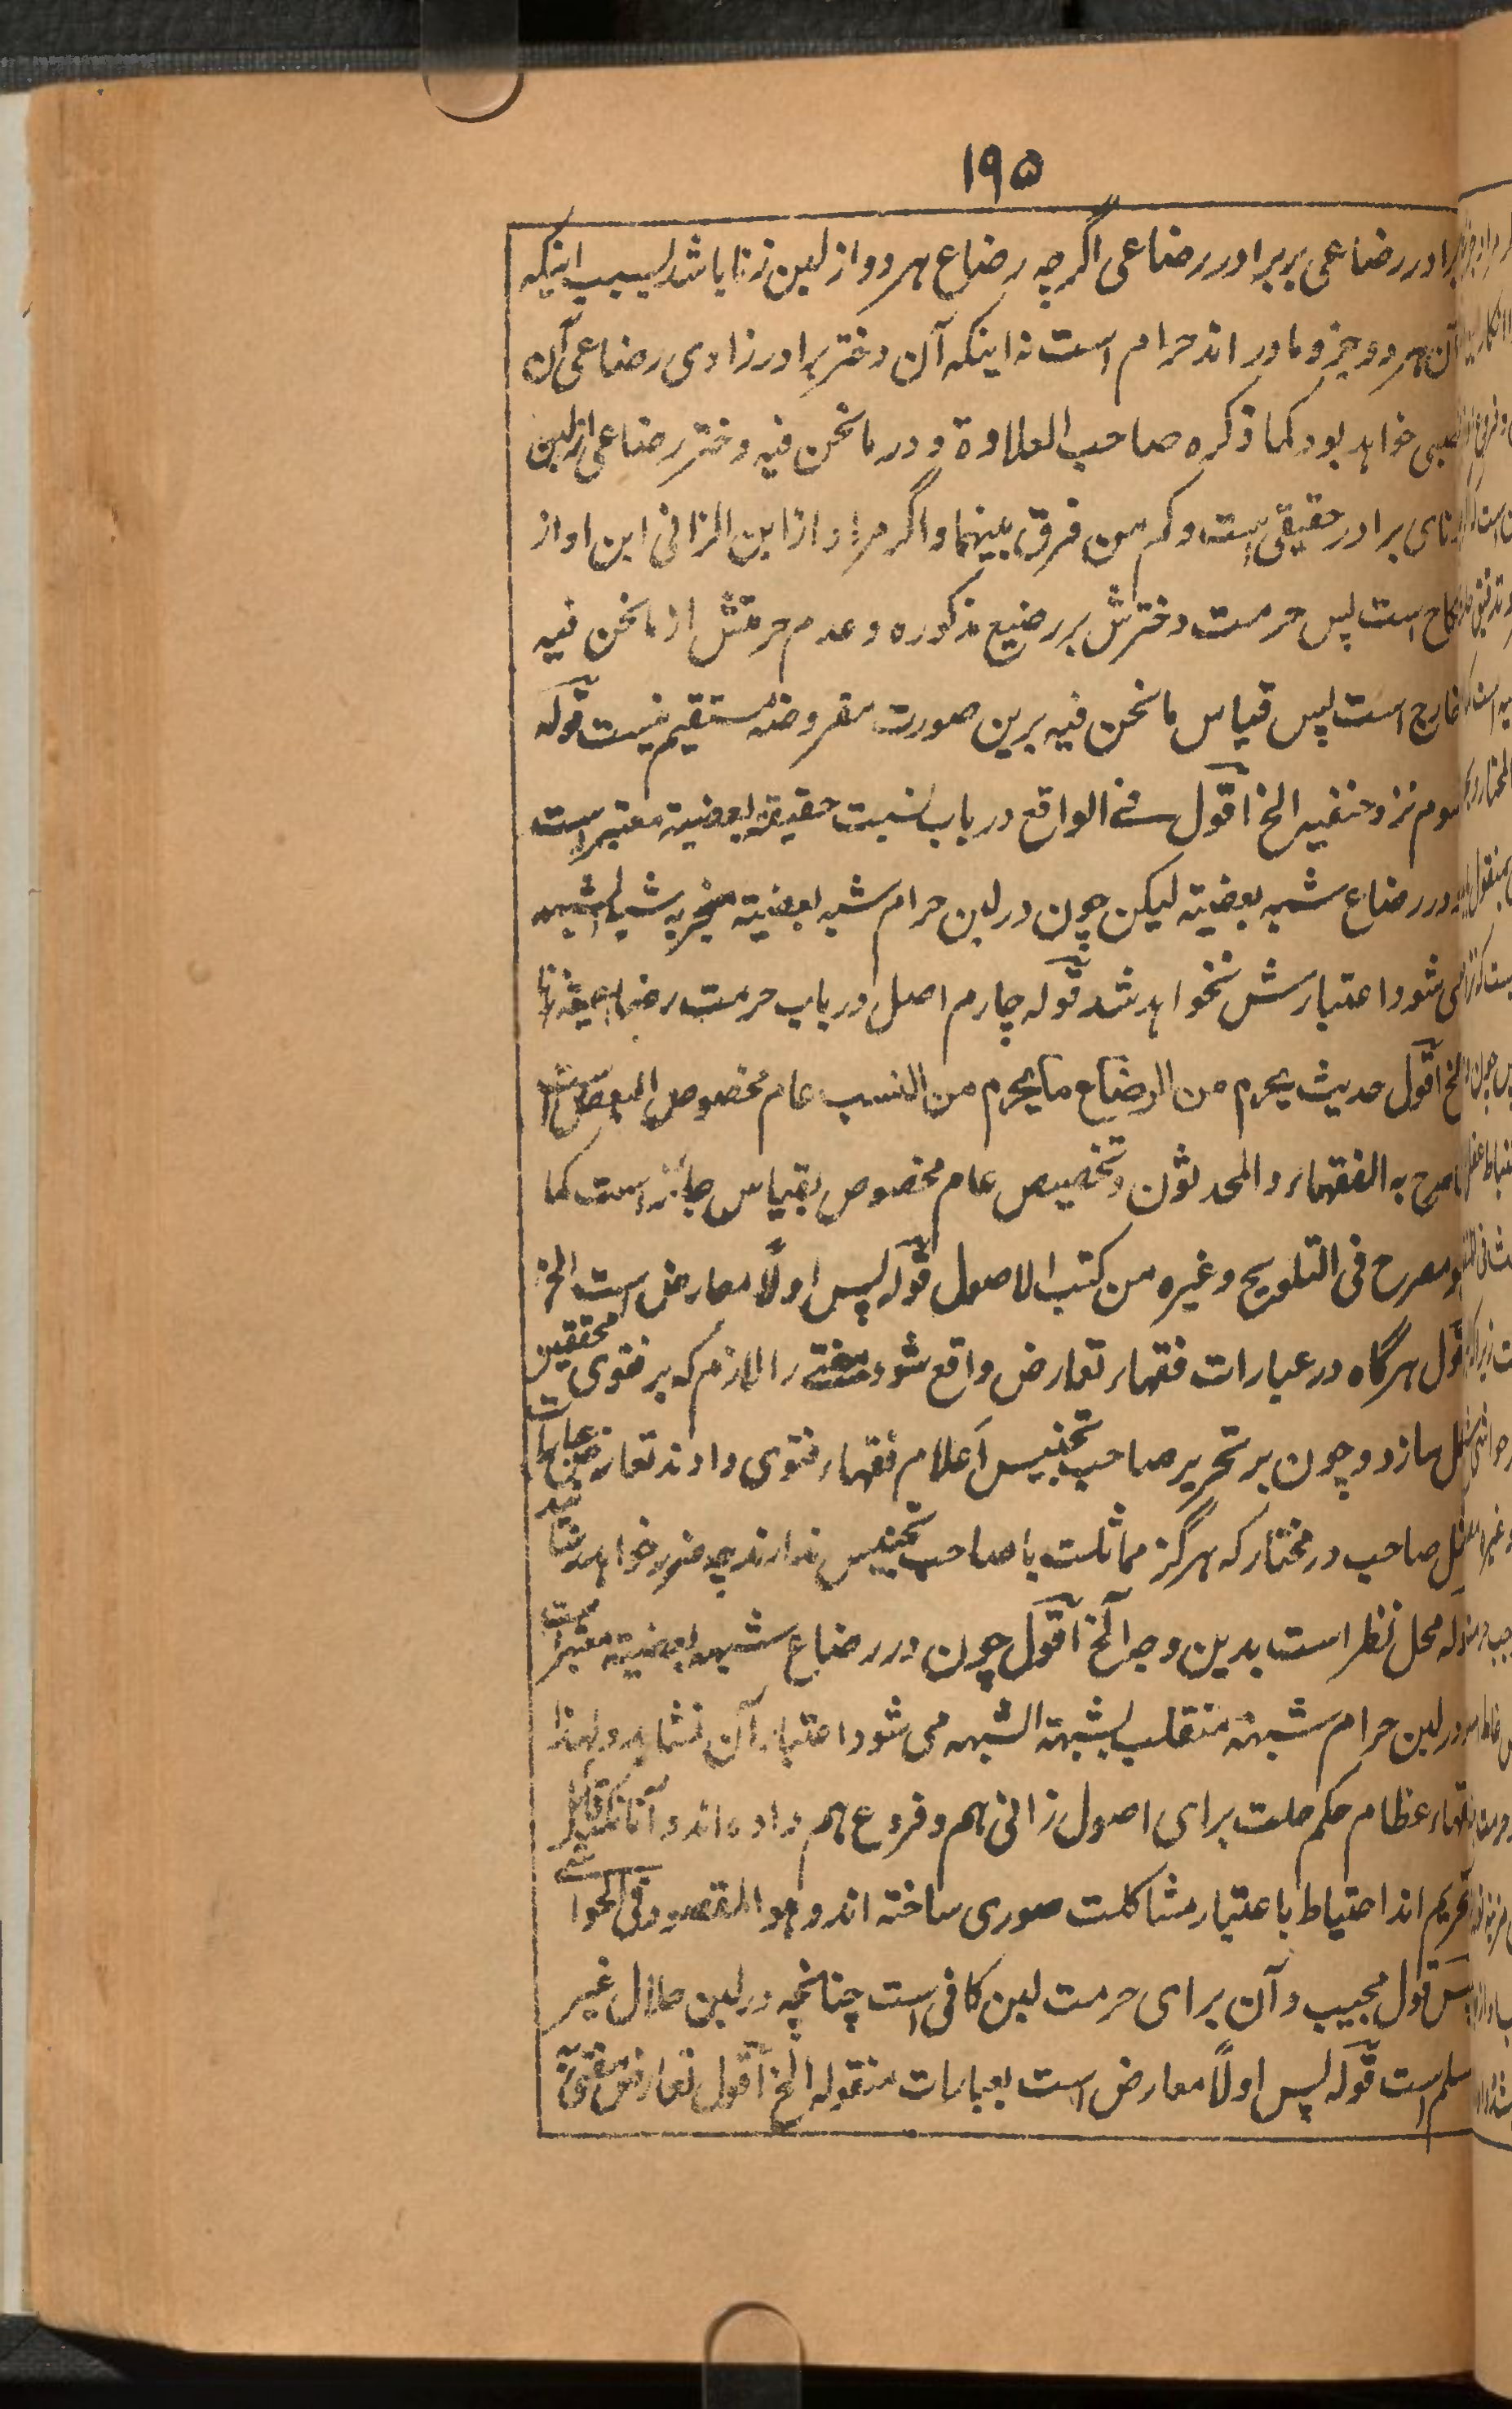 ١٩٥
برادر رضاعی بر برادر رضاعی اگرچه رضاع هر دو از لبن زنا باشد بسبب اینکه
آن هر دو جزو مادر اند حرام است نه اینکه آن دختر برادر زادی رضاعی آن
صبی خواهد بود کما ذکره صاحب العلاوة و در ما نحن فیه دختر رضاعی از لبن
زنای برادر حقیقی است و کم من فرق بینهما و اگر مراد از ابن الزانی ابن او از
نکاح است پس حرمت دخترش بر رضیع مذکوره و عدم حرمتش از ما نحن فیه
خارج است پس قیاس ما نحن فیه برین صورت مفروضه مستقیم نیست قوله
سوم نزد حنفیه الخ اقول فی الواقع در باب نسبت حقیقة بعضیته معتبر است
و در رضاع شبه بعضیته لیکن چون در لبن حرام شبه بعضیته منجر به شبه الشبهه
می شود اعتبارش نخواهد شد قوله چارم اصل در باب حرمت رضاعیه
الخ اقول حدیث یحرم من الرضاع ما یحرم من النسب عام مخصوص البعض
صرح به الفقهاء و المحدثون و تخصیص عام مخصوص بقیاس جائز است کما
هو مصرح فی التلویح و غیره من کتب الاصول قوله پس اولًا معارض است الخ
اقول هر گاه در عبارات فقهاء تعارض واقع شود مفتے را لازم که بر فتوی محققین
عمل سازد و چون بر تحریر صاحب تجنیس اعلام فقهاء فتوی دادند تعارض عبارت
مثل صاحب در مختار که هرگز مماثلت با صاحب تجنیس ندارند چه ضرر خواهد
قوله محل نظر است بدین وجه الخ اقول چون در رضاع شبهه بعضیته معتبر است
و در لبن حرام شبهة منقلب بشبهة الشبهه می شود اعتبار آن نشاید و لهذا
فقهاء عظام حکم حلت برای اصول زانی هم و فروع هم داده اند و آنانکه قائل
تحریم اند احتیاط باعتبار مشاکلت صوری ساخته اند و هو المقصود فی الحواشے
پس قول مجیب و آن برای حرمت لبن کافی است چنانچه در لبن حلال غیر
مسلم است قوله پس اولًا معارض است بعبارات منقوله الخ اقول تعارض